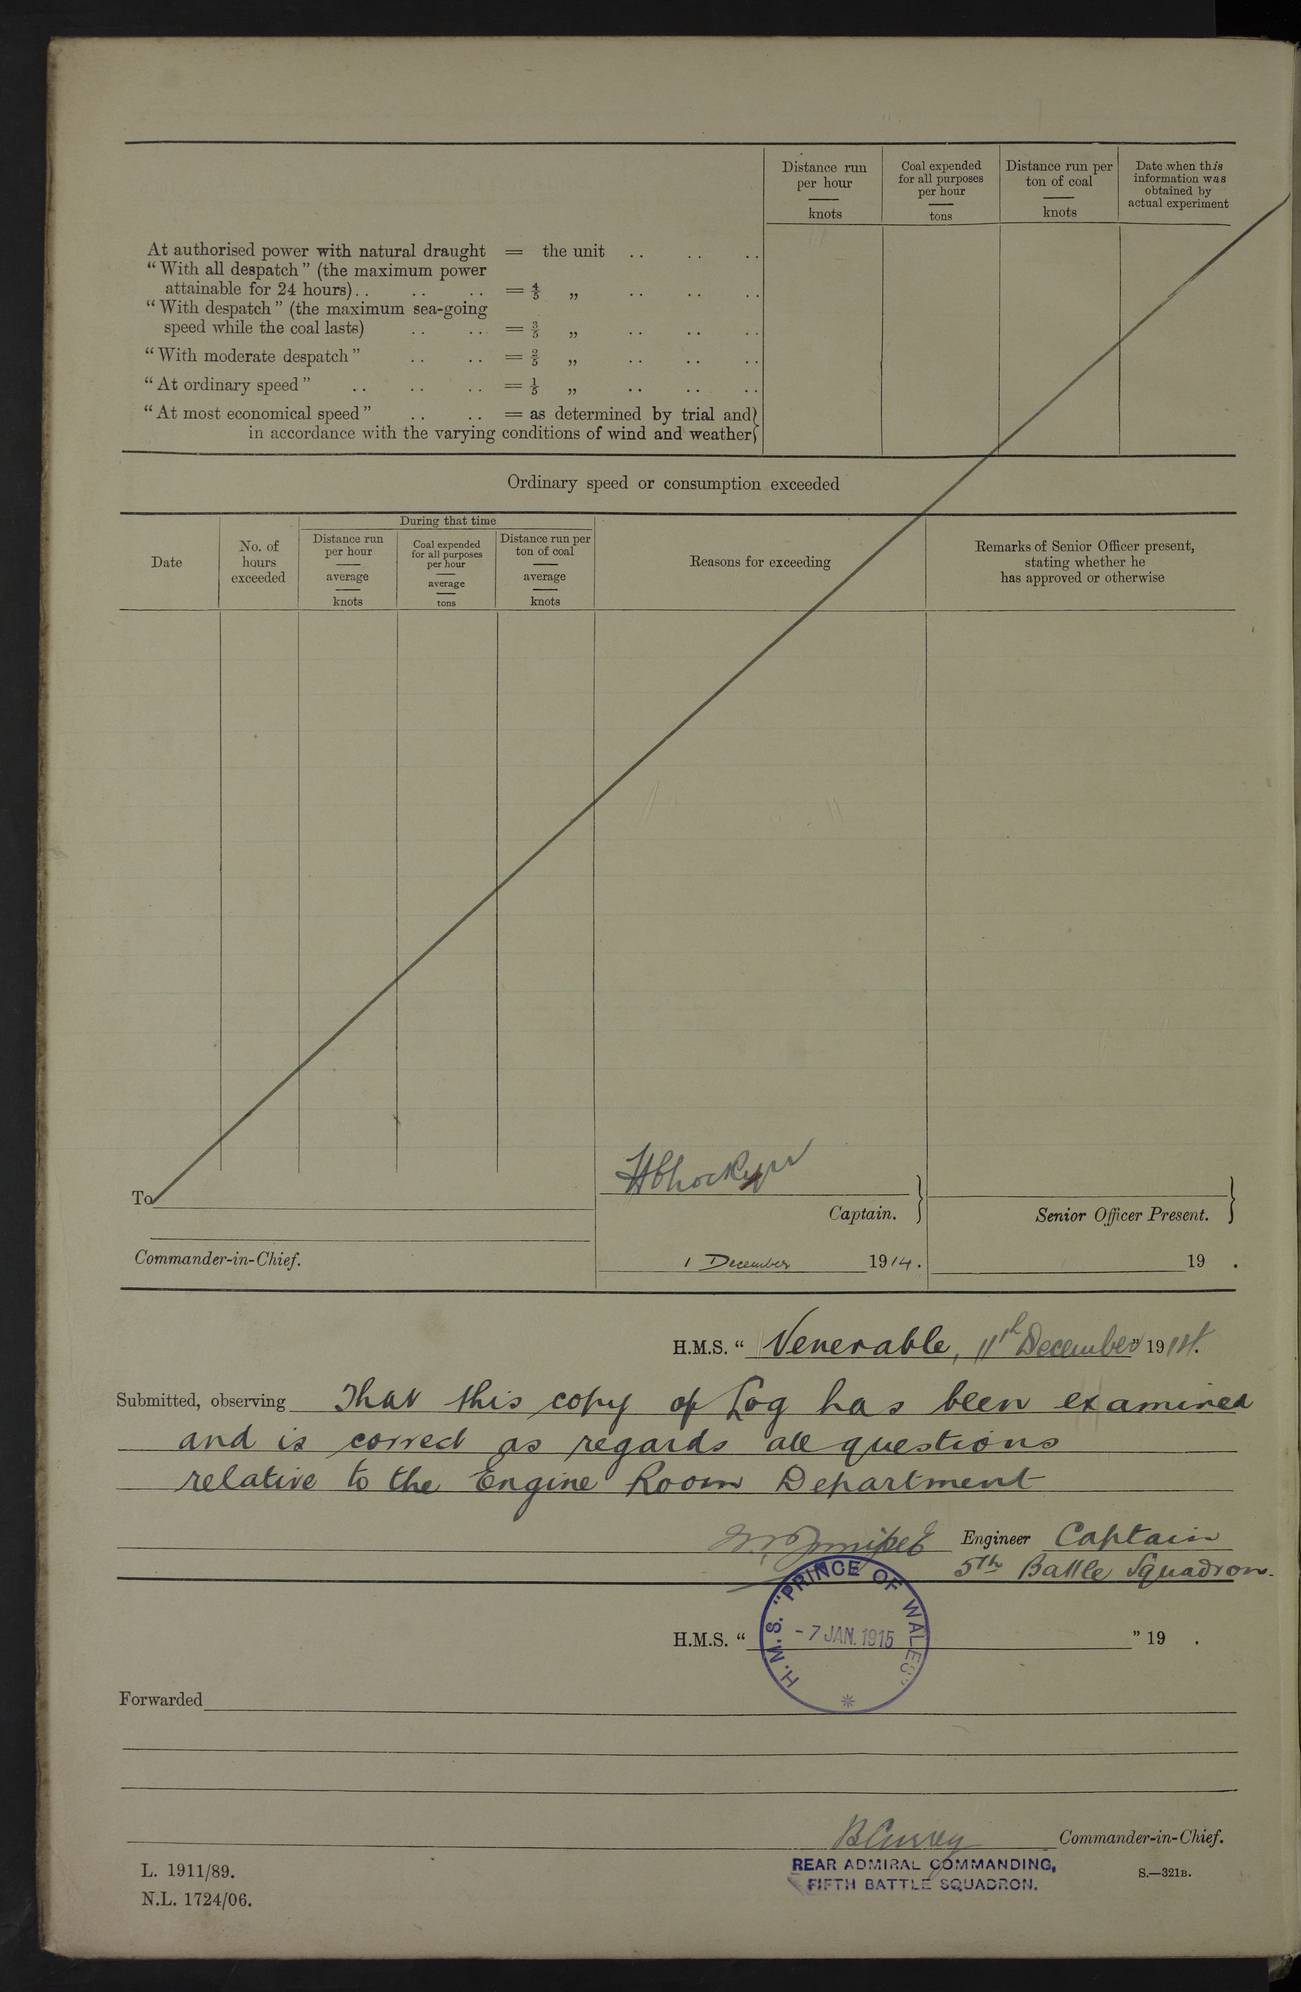 Distance run per hour
knots
Coal expended for all purposes per hour
tons
Distance run per ton of coal
knots
Date when this information was obtained by actual experiment
At authorised power with natural draught = the unit .. .. ..
“With all despatch” (the maximum power
attainable for 24 hours).. .. .. = 4/5 „ .. .. ..
“With despatch” (the maximum sea-going
speed while the coal lasts) .. .. = 3/5 „ .. .. ..
“With moderate despatch” .. .. = 2/5 „ .. .. ..
“At ordinary speed” .. .. .. = 1/5 „ .. .. ..
“At most economical speed” .. .. = as determined by trial and}
in accordance with the varying conditions of wind and weather}
Ordinary speed or consumption exceeded
Date
No. of hours exceeded
During that time
Distance run per hour
average
knots
Coal expended for all purposes per hour
average
tons
Distance run per ton of coal
average
knots
Reasons for exceeding
Remarks of Senior Officer present,
stating whether he
has approved or otherwise
To
Captain. }
Senior Officer Present. }
Commander-in-Chief.
1 December 1914.
19 .
H.M.S. “Venerable, 11th December” 1914.
Submitted, observing That this copy of Log has been examined
and is correct as regards all questions
relative to the Engine Room Department
Engineer Captain
5th Battle Squadron.
H.M.S. “PRINCE OF WALES”
- 7 JAN. 1915
H.M.S. “ ” 19 .
Forwarded
B Currey Commander-in-Chief.
REAR ADMIRAL COMMANDING,
FIFTH BATTLE SQUADRON.
S.—321B.
L. 1911/89.
N.L. 1724/06.